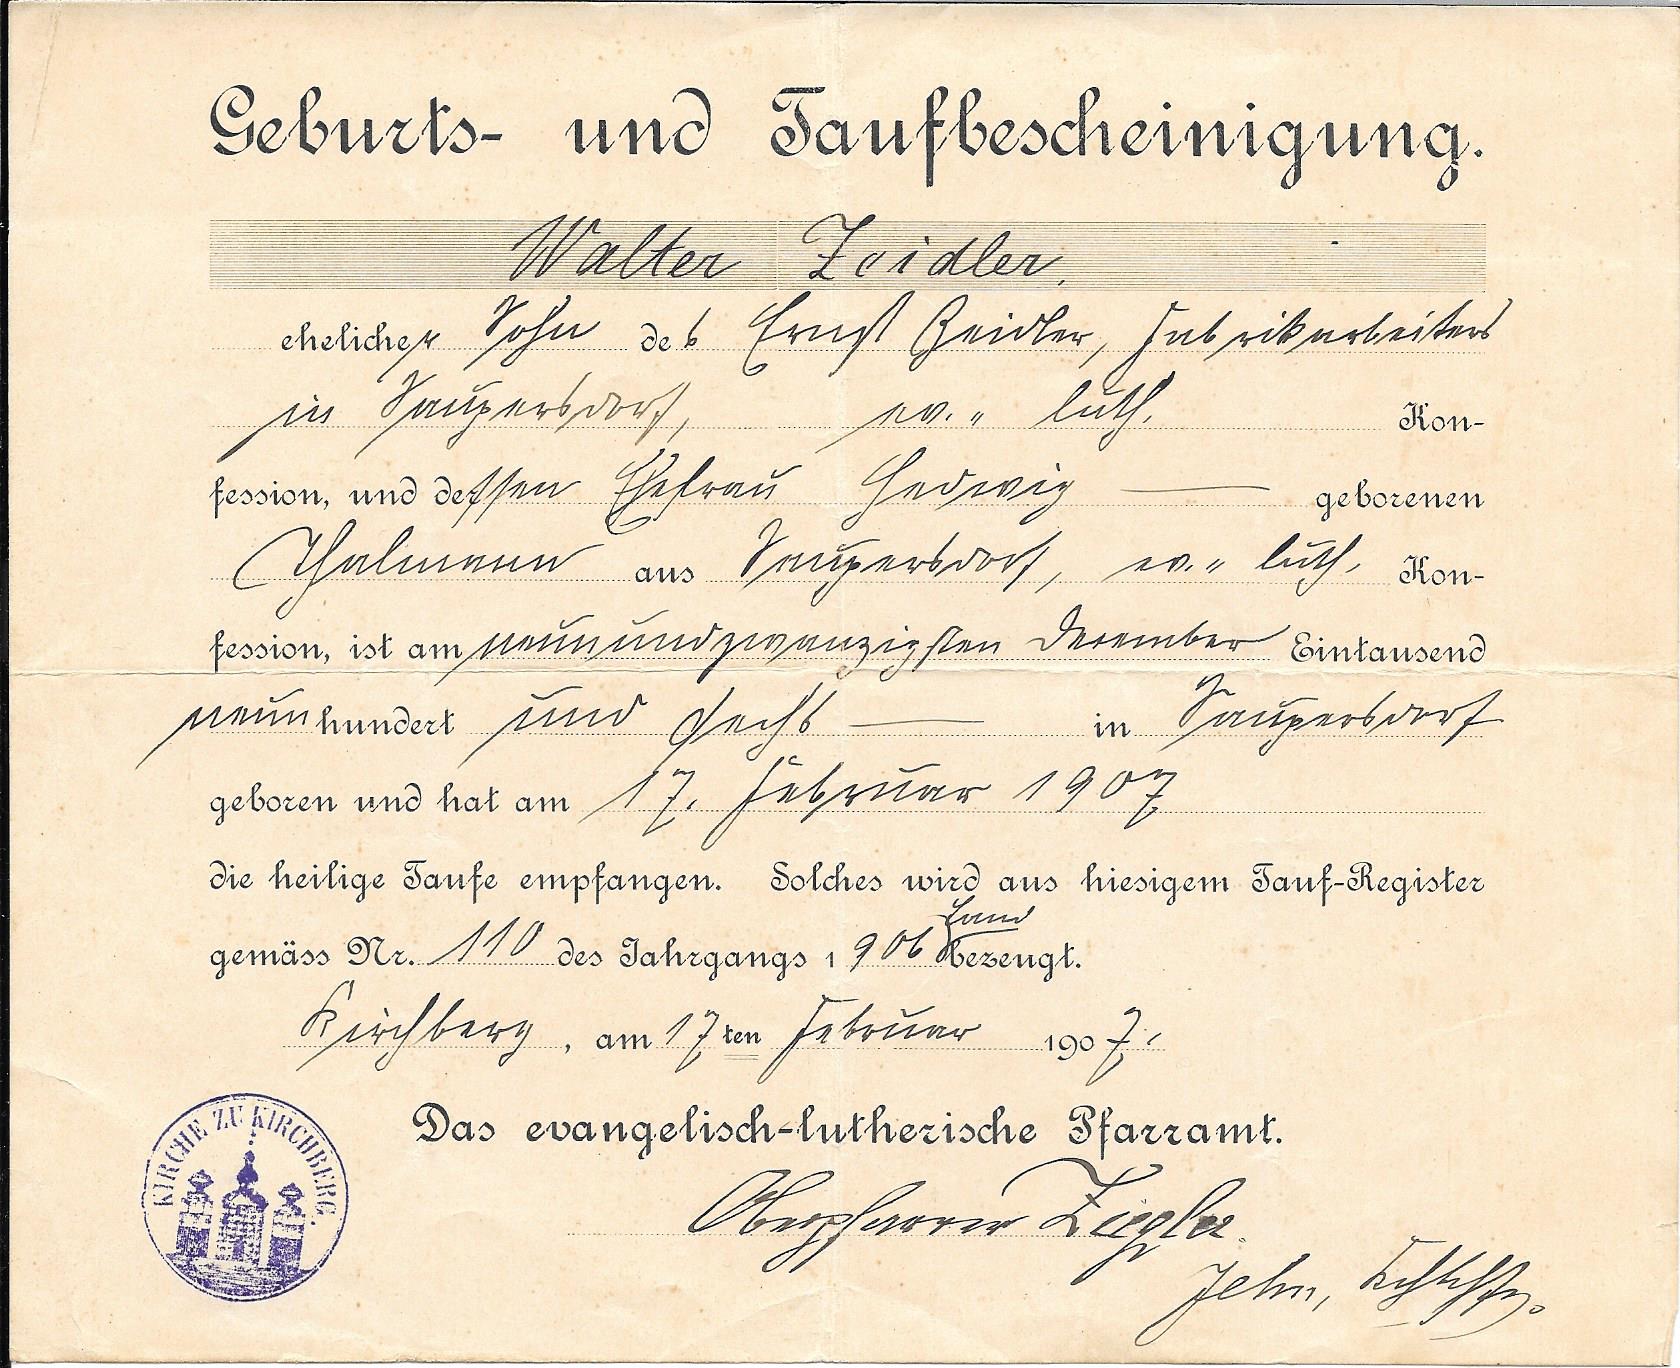 Geburts- und Taufbescheinigung.
Walter Zeidler.
ehelicher Sohn des Ernst Zeidler, Fabrikarbeiters
in Saupersdorf, ev.-luth. Kon-
fession, und dessen Ehefrau Hedwig — geborenen
Thalmann aus Saupersdorf, ev.-luth. Kon-
fession, ist am neunundzwanzigsten Dezember Eintausend
neunhundert und sechs — in Saupersdorf
geboren und hat am 17. Februar 1907
die heilige Taufe empfangen. Solches wird aus hiesigem Tauf-Register
Land
gemäss Nr. 110 des Jahrgangs 1906 bezeugt.
Kirchberg, am 17ten Februar 1907.
Das evangelisch-lutherische Pfarramt.
Oberpfarrer Ziegler.
KIRCHE ZU KIRCHBERG.